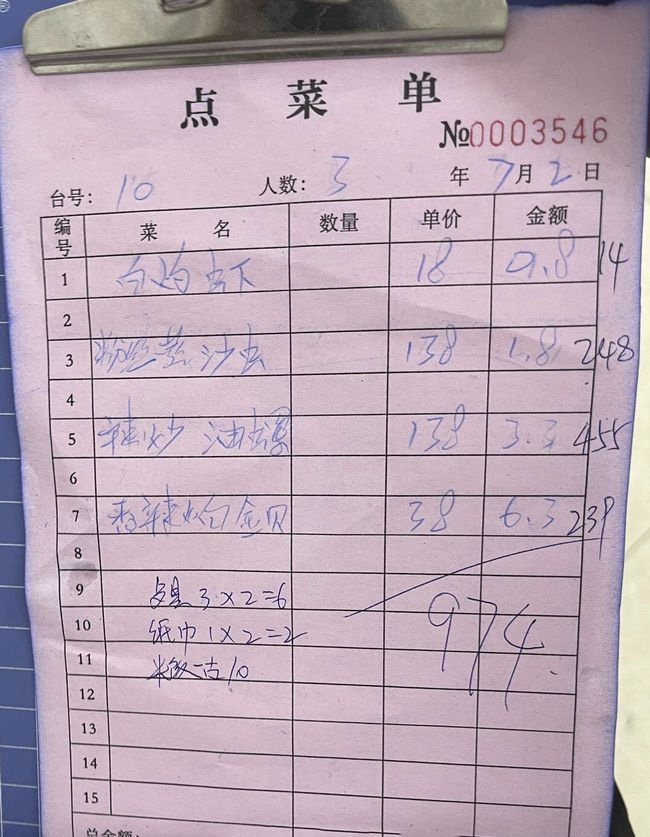 点菜单
№0003546
台号: 10 人数: 3 年 7月 2日
编号 菜名 数量 单价 金额
1 白灼虾 18 0.8 14
2
3 粉丝蒸沙虫 138 1.8 248
4
5 辣炒油螺 138 3.3 455
6
7 香辣炒白金贝 38 6.3 239
8
9 3×2=6
10 纸巾1×2=2 974
11 米饭一古10
12
13
14
15
总金额: